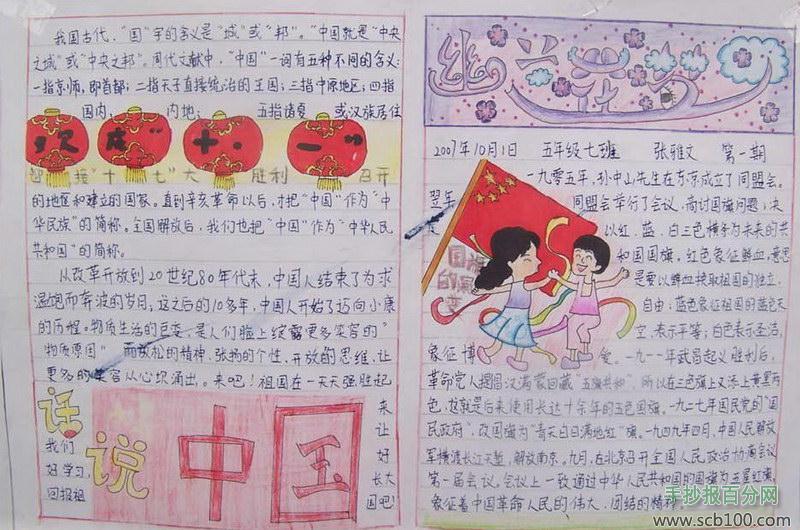 我国古代,"国"字的含义是"城"或"邦"。"中国就是"中央
之城"或"中央之邦"。周代文献中,"中国"一词有五种不同的含义:
一指京师,即首都;二指天子直接统治的王国;三指中原地区;四指
国内, 内地; 五指诸夏 或汉族居住
欢庆"十·一"
迎接"十七"大胜利召开
的地区和建立的国家。直到辛亥革命以后,才把"中国"作为"中
华民族"的简称。全国解放后,我们也把"中国"作为"中华人民
共和国"的简称。
从改革开放到20世纪80年代末,中国人结束了为求
温饱而奔波的岁月;这之后的10多年,中国人开始了迈向小康
的历程。物质生活的巨变,是人们脸上绽露更多笑容的"
物质原因" 而放松的精神,张扬的个性,开放的思维,让
更多的笑容从心坎涌出。来吧!祖国在一天天强胜起
来
让
我们
好好学习,
长大
回报祖国吧!
话说
中国
2007年10月1日 五年级七班 张雅文 第一期
一九零五年,孙中山先生在东京成立了同盟会。
翌年 同盟会举行了会议,商讨国旗问题;决
定 以红、蓝、白三色横子为未来的共
和国国旗,红色象征鲜血,意思
是要以鲜血换取祖国的独立,
自由;蓝色象征祖国的蓝色天
空,表示平等;白色表示圣洁,
象征博爱。一九一一年武昌起义胜利后,
革命党人提倡汉满蒙回藏"五族共和",所以在三色旗上又添上黄黑两
色,这就是后来使用长达十余年的五色国旗。一九二七年国民党的"国
民政府",改国旗为"青天白日满地红"旗。一九四九年四月,中国人民解放
军横渡长江天堑,解放南京。九月,在北京召开全国人民政治协商会议
第一届会议。会议上一致通过中华人民共和国的国旗为五星红旗,
象征着中国革命人民的伟大、团结的精神。
国旗
的
变
手抄报百分网
www.scb100.com